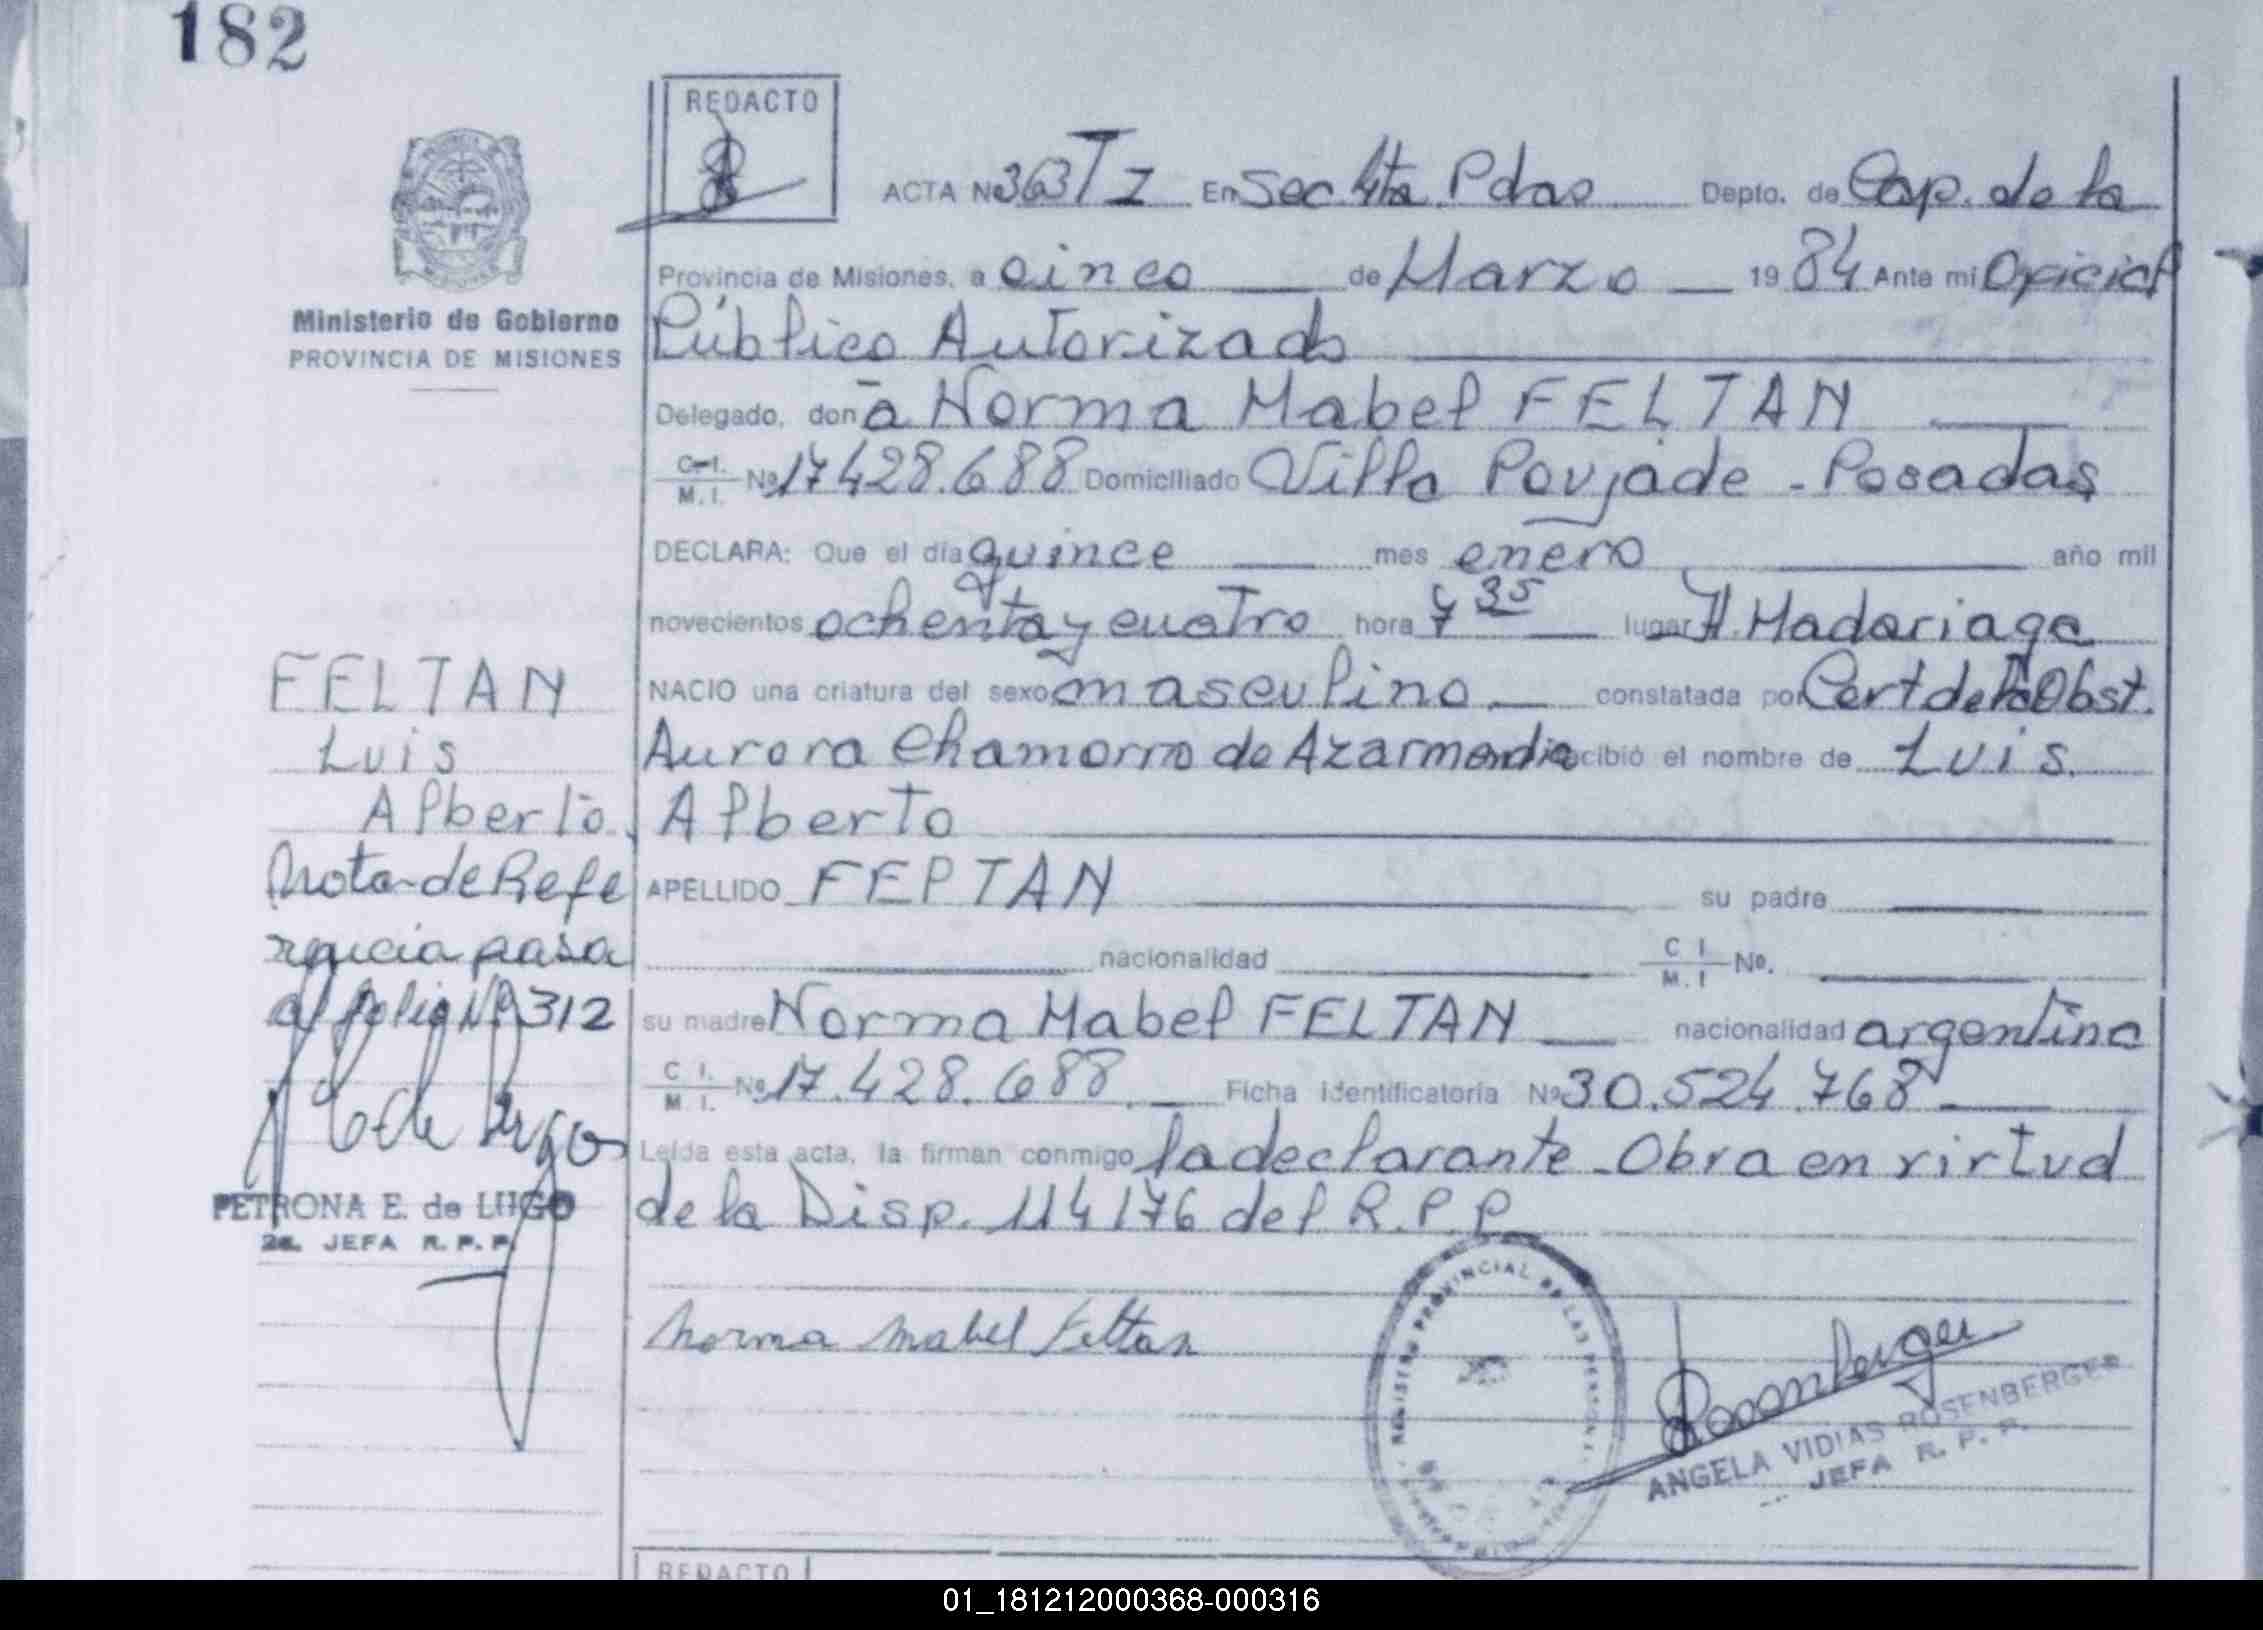 182
REDACTO
ACTA Nº 363 T I En Sec 4ta Pdas Depto. de Cap. de la
Provincia de Misiones, a cinco de Marzo 1984 Ante mi Oficial
Ministerio de Gobierno
PROVINCIA DE MISIONES
Público Autorizado
Delegado, don a Norma Mabel FELTAN
C.I. M.I. Nº 17428.688 Domiciliado Villa Poujade - Posadas
DECLARA: Que el día quince mes enero año mil
novecientos ochenta y cuatro hora 7 35 lugar H. Madariaga
NACIO una criatura del sexo masculino constatada por Cert de la Obst.
Aurora Chamorro de Azarmendia recibió el nombre de Luis
Alberto
APELLIDO FEPTAN su padre
nacionalidad C I M.I Nº.
su madre Norma Mabel FELTAN nacionalidad argentina
C I. M. I. Nº 17.428.688 Ficha identificatoria Nº 30.524.768
Leída esta acta, la firman conmigo la declarante - Obra en virtud
de la Disp. 114/76 del R.P.P
FELTAN
Luis
Alberto
Nota de Refe
rencia pasa
al folio Nº 312
PETRONA E. de LUGO
2a. JEFA R.P.P.
Norma Mabel Feltan
REGISTRO PROVINCIAL DE LAS PERSONAS
Rosenberger
ANGELA VIDIAS ROSENBERGER
JEFA R. P. P.
REDACTO
01_181212000368-000316